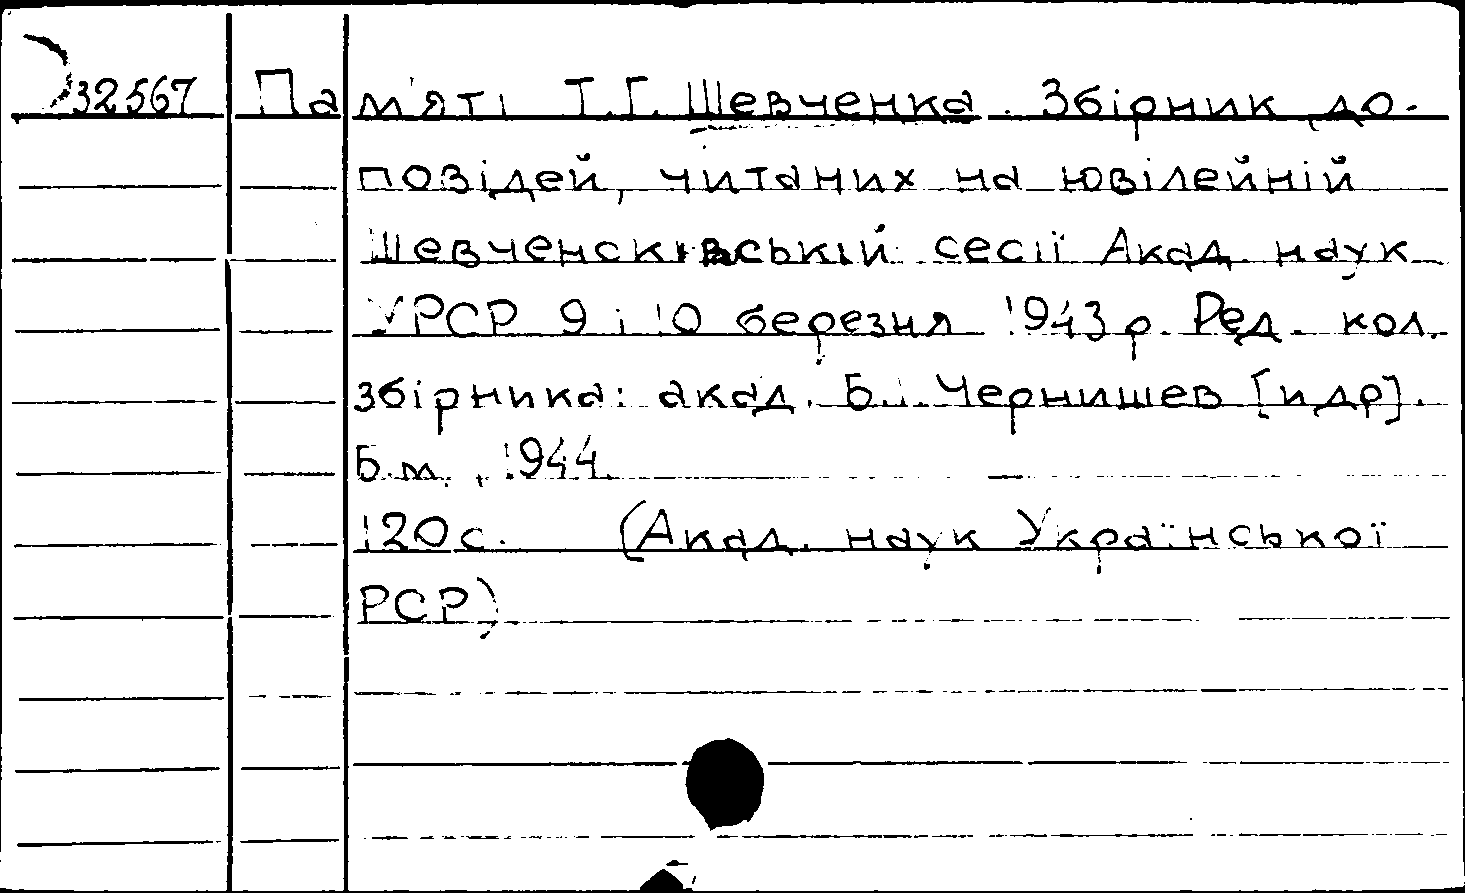 32567 Пам'яті Т.Г. Шевченка. Збірник до-
повідей, читаних на ювілейній
Шевченсківській сесії Акад. наук
УРСР 9 і 10 березня 1943 р. Ред. кол.
збірника: акад. Б.І. Чернишев [и др].
Б.м., 1944.
120 с. (Акад. наук Української
РСР)